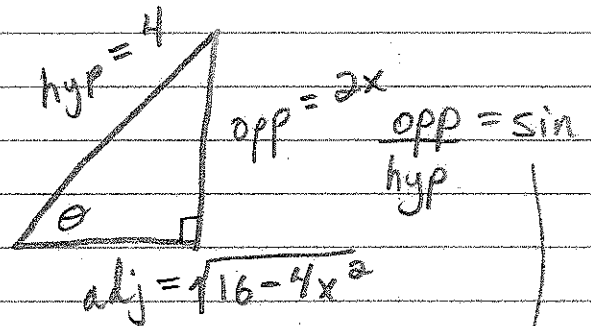 hyp = 4
opp = 2x
opp/hyp = sin
θ
adj = √16-4x²